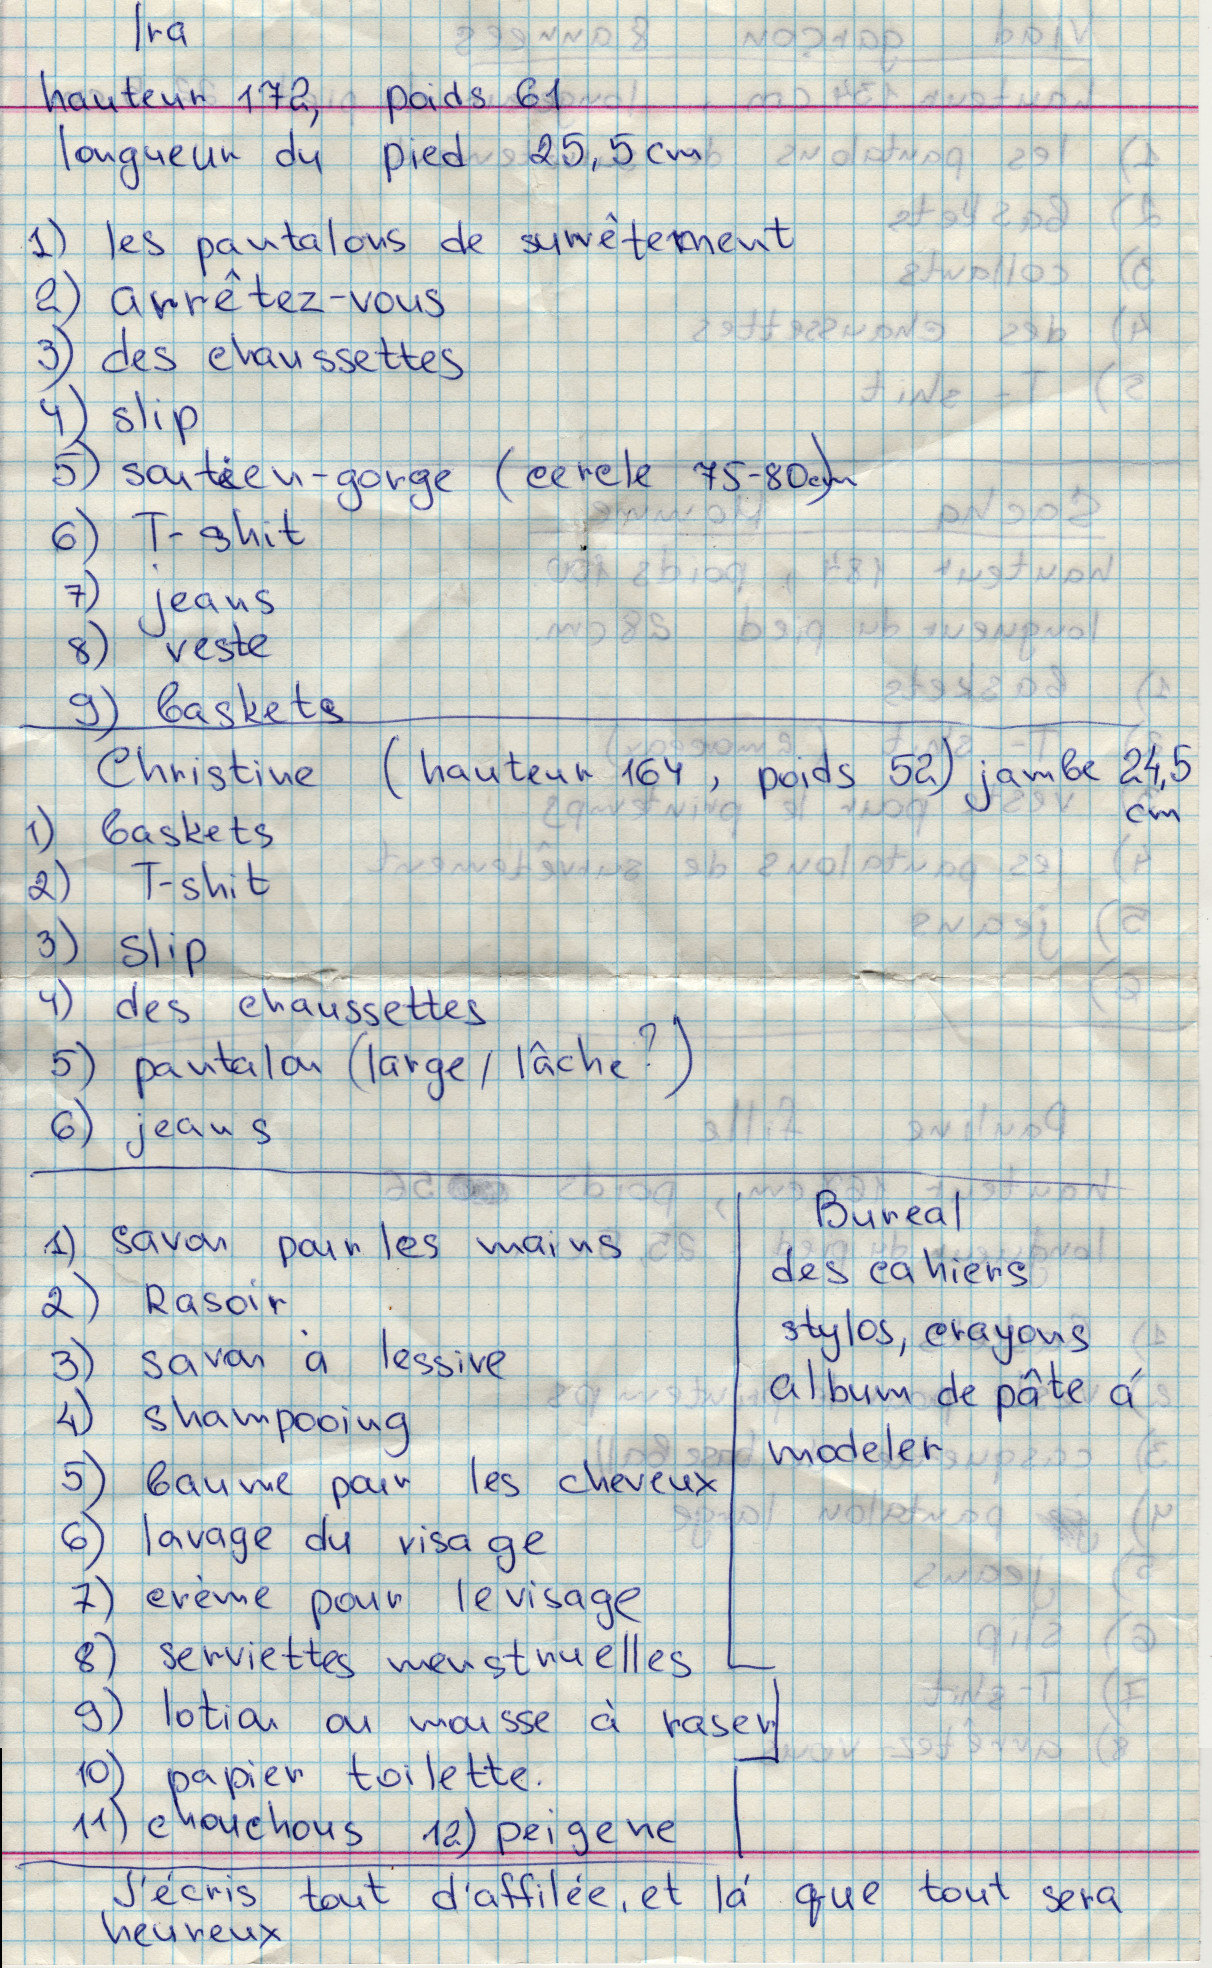 Ira
hauteur 172, poids 61
longueur du pied 25,5 cm
1) les pantalons de survêtement
2) arrêtez-vous
3) des chaussettes
4) slip
5) soutien-gorge (cercle 75-80cm)
6) T-shit
7) jeans
8) veste
9) baskets
Christine (hauteur 164, poids 52) jambe 24,5
cm
1) baskets
2) T-shit
3) slip
4) des chaussettes
5) pantalon (large/lâche?)
6) jeans
1) savon pour les mains
2) Rasoir
3) savon à lessive
4) shampooing
5) baume pour les cheveux
6) lavage du visage
7) crème pour le visage
8) serviettes menstruelles
9) lotion ou mousse à raser
10) papier toilette.
11) chouchous 12) peigene
Bureal
des cahiers
stylos, crayons
album de pâte á
modeler
J'écris tout d'affilée, et lá que tout sera
heureux